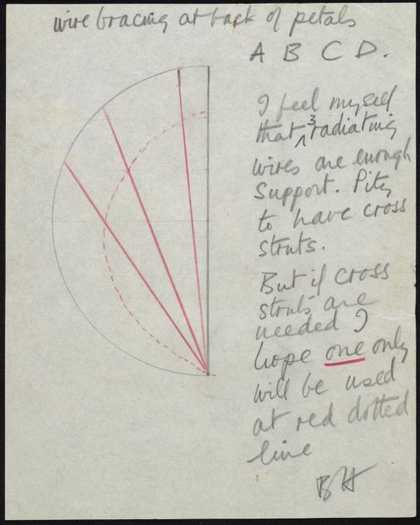 wire bracing at back of petals
A B C D.
I feel myself
that 3 radiating
wires are enough
support. Pity
to have cross
struts.
But if cross
struts are
needed I
hope one only
will be used
at red dotted
line
BH